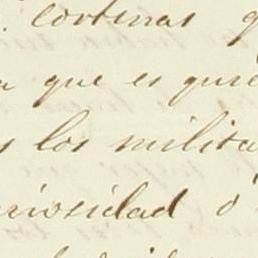 cortinas
que es quie
los milita
riosidad ó